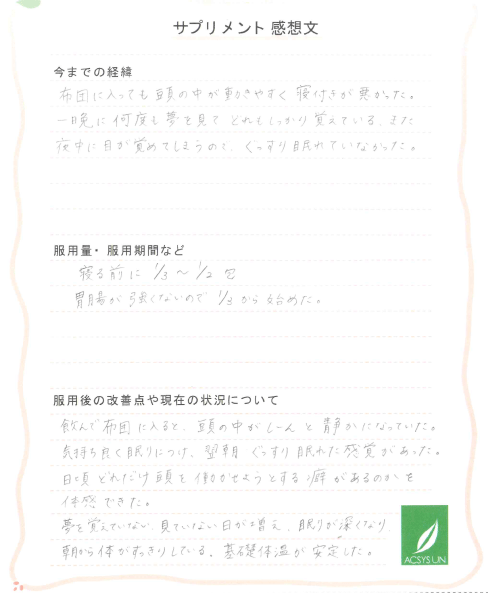 サプリメント 感想文
今までの経緯
布団に入っても頭の中が動きやすく寝付きが悪かった。
一晩に何度も夢を見てどれもしっかり覚えている。また
夜中に目が覚めてしまうので、ぐっすり眠れていなかった。
服用量・服用期間など
寝る前に 1/3〜1/2 包
胃腸が強くないので 1/3 から始めた。
服用後の改善点や現在の状況について
飲んで布団に入ると、頭の中がしーんと静かになっていた。
気持ち良く眠りにつけ、翌朝ぐっすり眠れた感覚があった。
日頃どれだけ頭を働かせようとする癖があるのかを
体感できた。
夢を覚えていない、見ていない日が増え、眠りが深くなり、
朝から体がすっきりしている。基礎体温が安定した。
ACSYSUN